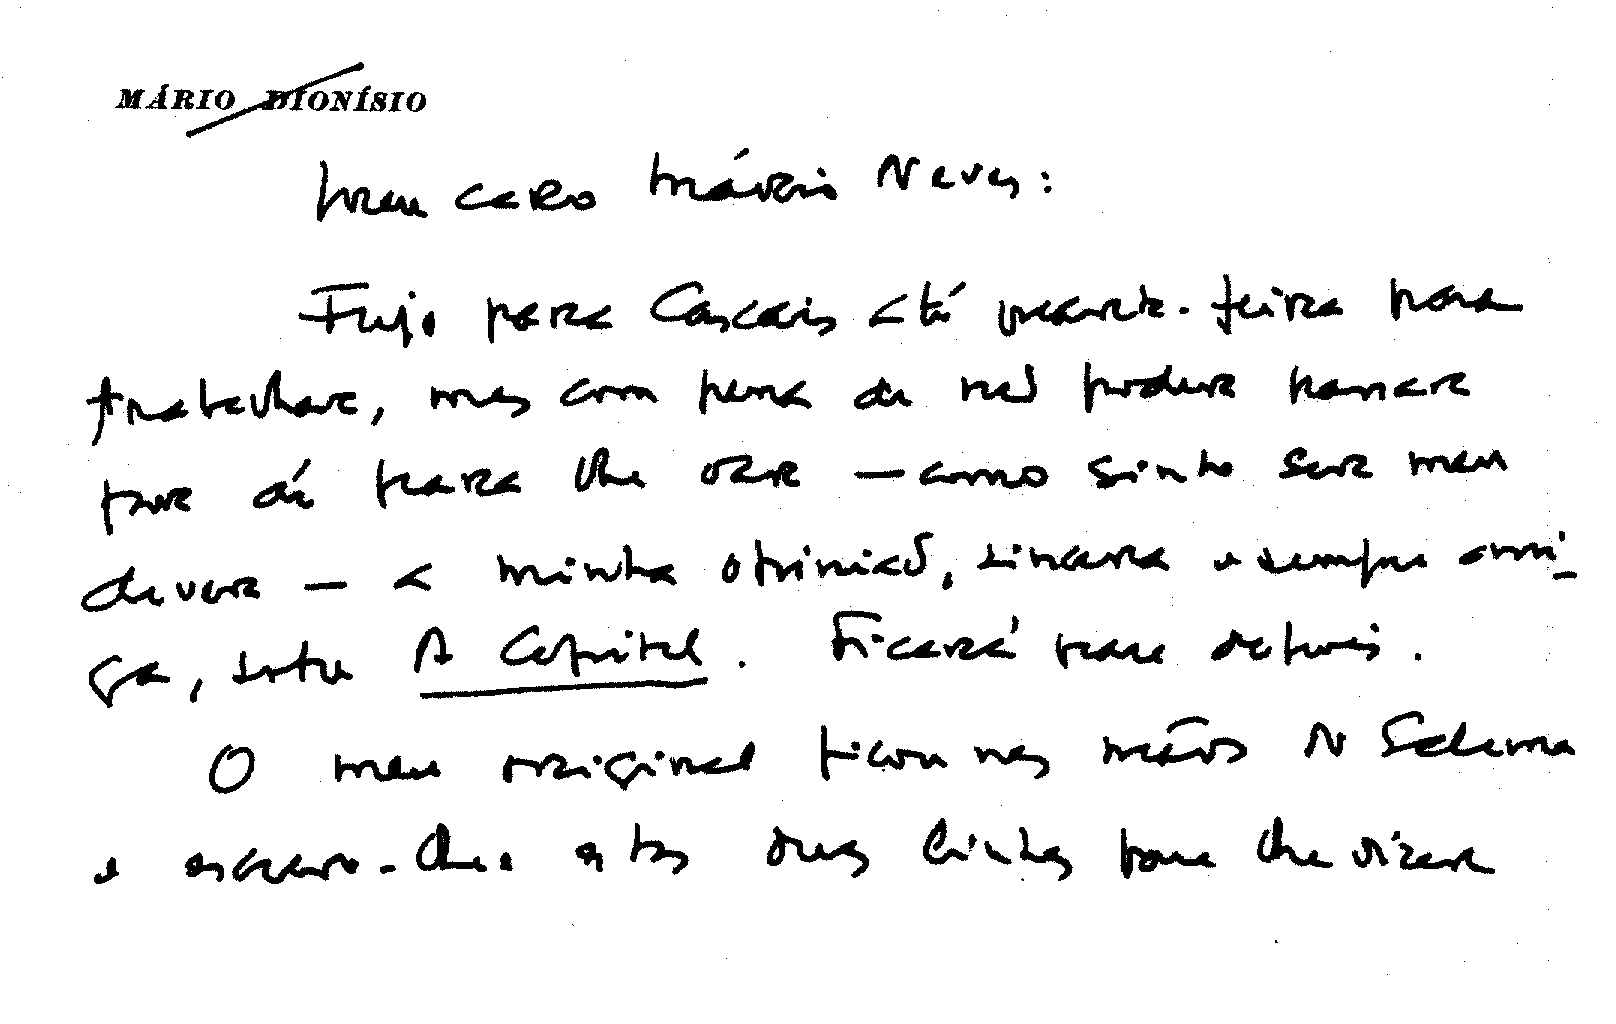 MÁRIO DIONÍSIO
Meu caro Mário Neves:
Fujo para Cascais até quarta-feira para
trabalhar, mas com pena de não poder passar
por aí para lhe dar — como sinto ser meu
dever — a minha opinião, sincera e sempre ami-
ga, sobre A Capital. Ficará para depois.
O meu original ficou nas mãos do Salema
e escrevo-lhe estas duas linhas para lhe dizer